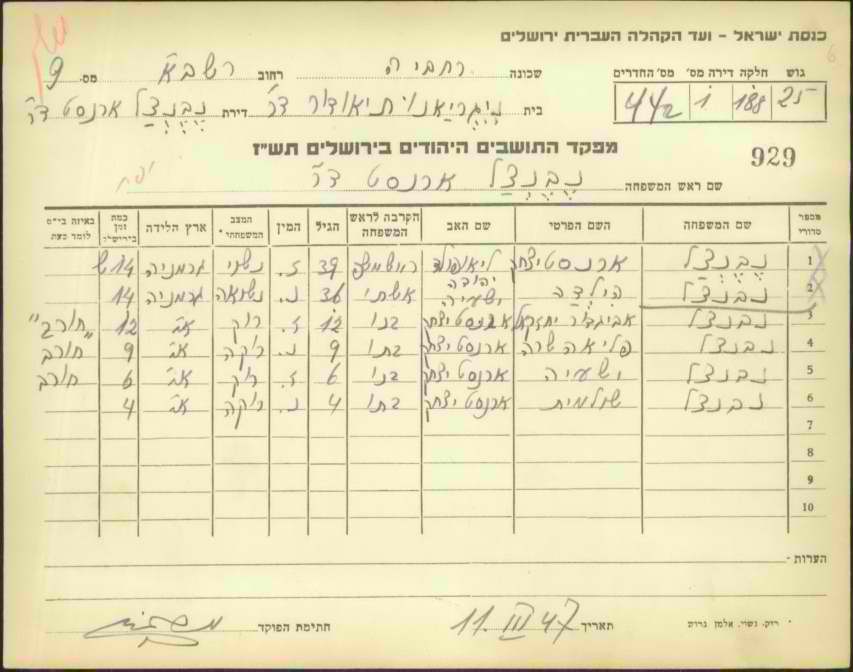 כנסת ישראל – ועד הקהלה העברית ירושלים
גוש חלקה דירה מס' מס' החדרים
25 188 1 4 4/2
שכונה רחביה רחוב רשב"א מס. 9
בית תיאודור ד"ר דירת נבנצל ארנסט ד"ר
מפקד התושבים היהודים בירושלים תש"ז
929
שם ראש המשפחה נבנצל ארנסט ד"ר
מספר סדורי שם המשפחה השם הפרטי שם האב הקרבה לראש המשפחה הגיל המין המצב המשפחתי* ארץ הלידה כמה זמן בירושלים באיזה בי"ס לומד כעת
1 נבנצל ארנסט יצחק ליאופולד 39 ז. נשוי גרמניה 14
2 נבנצל הילדה יהודה ישעיה אשתי 36 נ. נשואה גרמניה 14
3 נבנצל אביגדור יחזקאל ארנסט יצחק בנו 12 ז. רוק א"י 12 "חורב"
4 נבנצל פליאה שרה ארנסט יצחק בתו 9 נ. רוקה א"י 9 חורב
5 נבנצל ישעיה ארנסט יצחק בנו 6 ז. רוק א"י 6 חורב
6 נבנצל שולמית ארנסט יצחק בתו 4 נ. רוקה א"י 4
7
8
9
10
הערות -
* ריק, נשוי, אלמן גרוש
תאריך 11. III 47 חתימת הפוקד